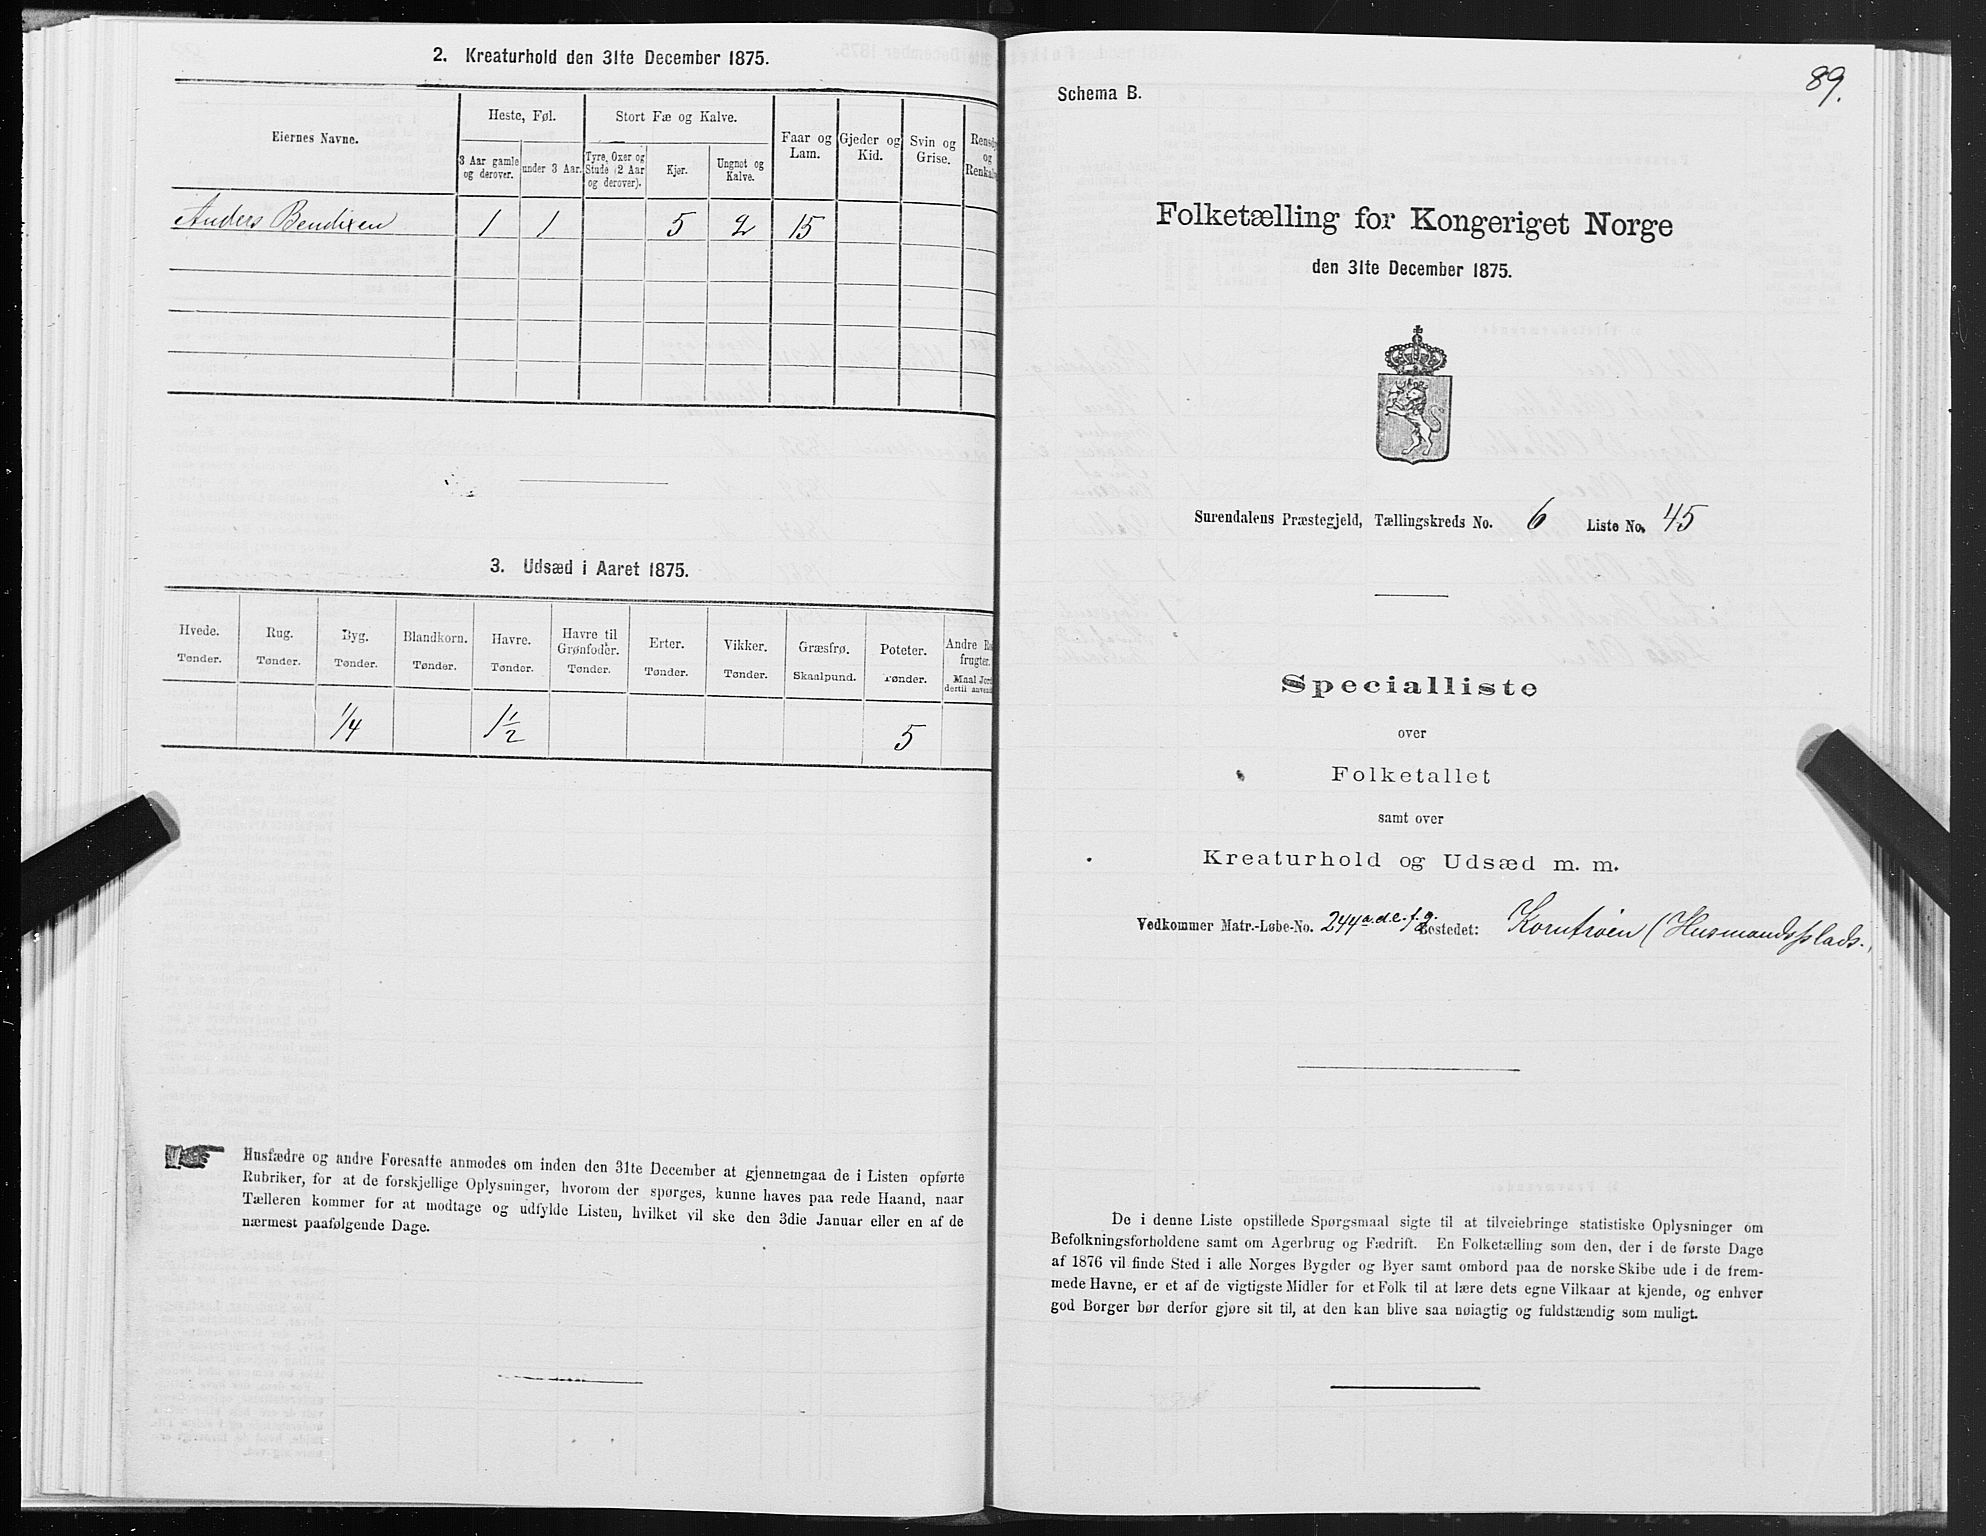 2. Kreaturhold den 31te December 1875.
Eiernes Navne.
Heste, Føl.
Stort Fæ og Kalve.
Faar og Lam.
Gjeder og Kid.
Svin og Grise.
Rensdy
og
Renkalv
3 Aar gamle og derover.
under 3 Aar.
Tyre, Oxer og Stude (2 Aar og derover).
Kjør.
Ungnøt og Kalve.
Anders Bendixen 1 1 5 2 15
3. Udsæd i Aaret 1875.
Hvede. Rug. Byg. Blandkorn. Havre. Havre til Grønfoder. Erter. Vikker. Græsfrø. Poteter. Andre Ro frugter.
Tønder. Tønder. Tønder. Tønder. Tønder. Tønder. Tønder. Tønder. Skaalpund. Tønder. Maal Jord dertil anvend
1/4 1 1/2 5
Husfædre og andre Foresatte anmodes om inden den 31te December at gjennemgaa de i Listen opførte
Rubriker, for at de forskjellige Oplysninger, hvorom der spørges, kunne haves paa rede Haand, naar
Tælleren kommer for at modtage og udfylde Listen, hvilket vil ske den 3die Januar eller en af de
nærmest paafølgende Dage.
89.
Schema B.
Folketælling for Kongeriget Norge
den 31te December 1875.
Surendalens Præstegjeld, Tællingskreds No. 6 Liste No. 45
Specialliste
over
Folketallet
samt over
Kreaturhold og Udsæd m. m.
Vedkommer Matr.-Løbe-No. 244a.d.e.f.g. Bostedet: Korntrøen (Husmandsplads.
De i denne Liste opstillede Spørgsmaal sigte til at tilveiebringe statistiske Oplysninger om
Befolkningsforholdene samt om Agerbrug og Fædrift. En Folketælling som den, der i de første Dage
af 1876 vil finde Sted i alle Norges Bygder og Byer samt ombord paa de norske Skibe ude i de frem-
mede Havne, er et af de vigtigste Midler for et Folk til at lære dets egne Vilkaar at kjende, og enhver
god Borger bør derfor gjøre sit til, at den kan blive saa nøiagtig og fuldstændig som muligt.